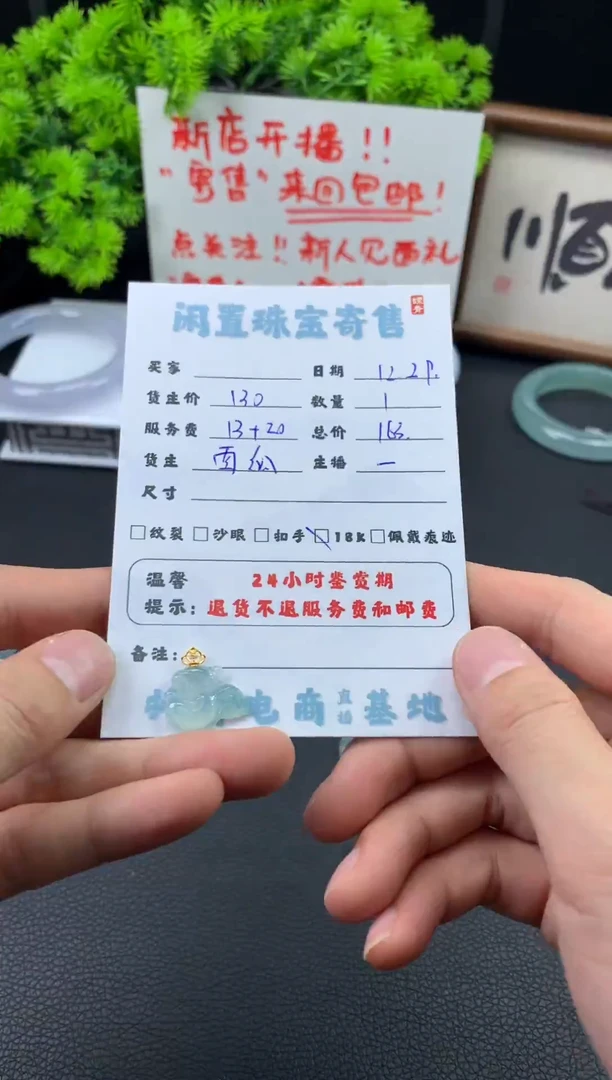 新店开播!!
"寄售"来回包邮!
点关注!!新人见面礼
闲置珠宝寄售
买家
日期 12.29.
货主价 130
数量 1
服务费 13+20
总价 163.
货主
主播 一
尺寸
纹裂 沙眼 扣手 18k 佩戴痕迹
温馨 24小时鉴赏期
提示: 退货不退服务费和邮费
备注:
电商直播基地
顺